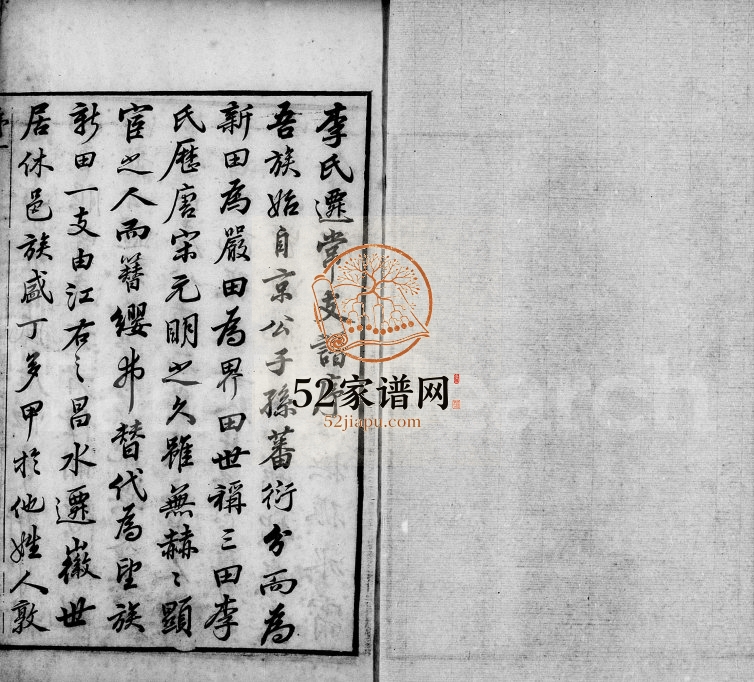 李氏遷常支譜序
吾族始自京公子孫蕃衍分而為
新田為嚴田為界田世稱三田李
氏歷唐宋元明之久雖無赫〻顯
宦之人而簪纓弗替代為望族
新田一支由江右之昌水遷徽世
居休邑族盛丁多甲於他姓人敦
52家谱网
52jiapu.com